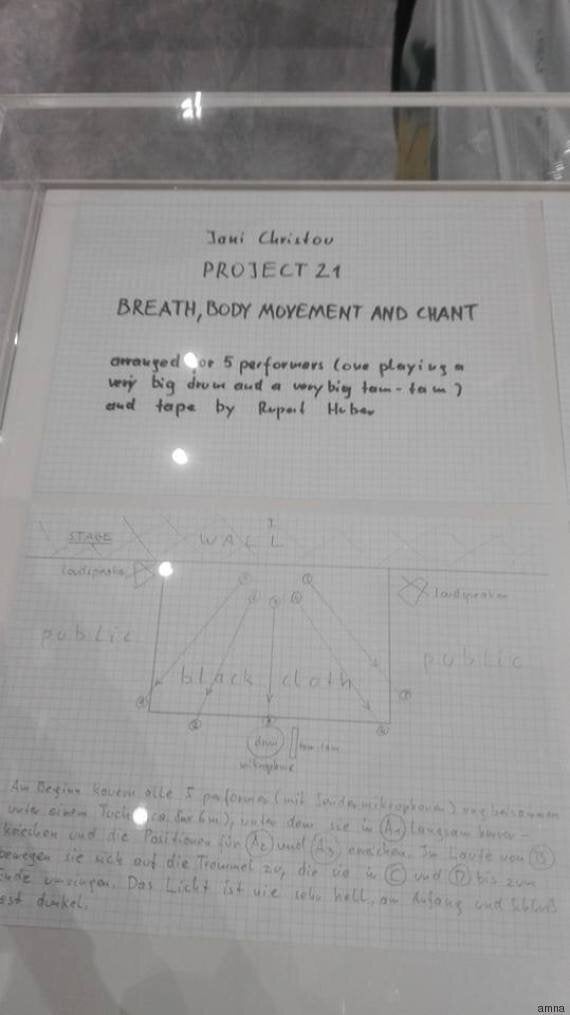 Jani Christou
PROJECT 21
BREATH, BODY MOVEMENT AND CHANT
arranged for 5 performers (one playing a
very big drum and a very big tam-tam)
and tape by Rupert Huber
STAGE WALL
loudspeaker
loudspeaker
public
public
black cloth
drum
tam-tam
mikrophone
Am Beginn kauern alle 5 performer (mit Sendermikrophonen) eng beisammen
unter einem Tuch (ca. 5m x 6m), unter dem sie in A1 langsam hervor-
kriechen und die Positionen für A2 und A3 erreichen. Im Laufe von B
bewegen sie sich auf die Trommel zu, die sie in C und D bis zum
Ende umringen. Das Licht ist nie sehr hell, am Anfang und Schluß
ist dunkel.
amna